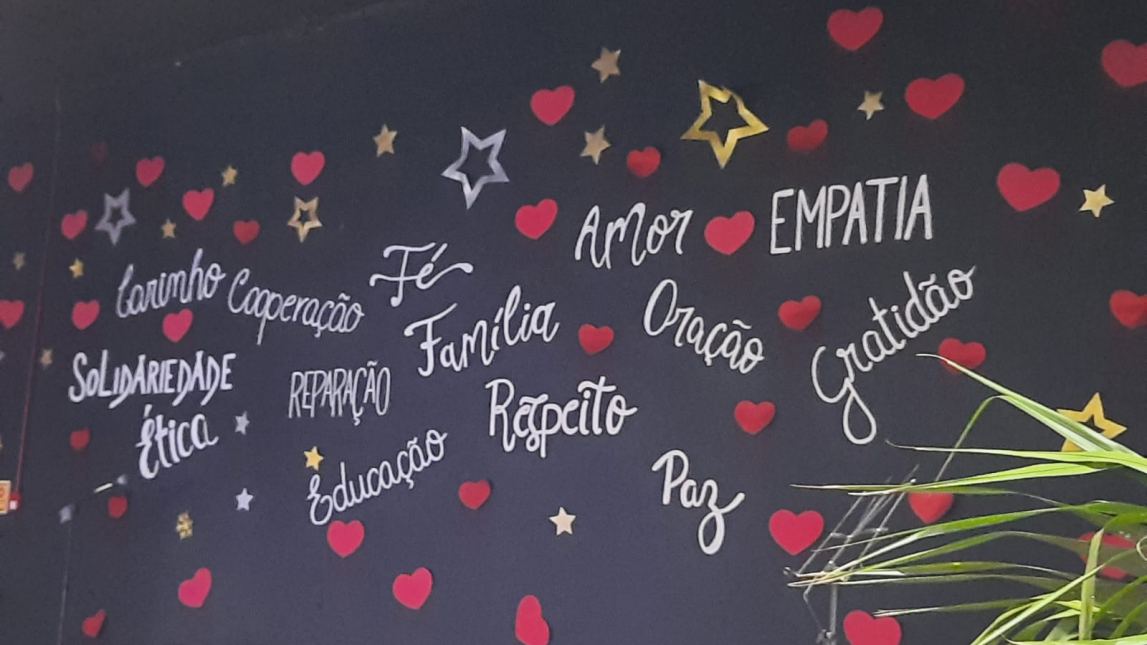 Amor
EMPATIA
Fé
Carinho
Cooperação
Família
Oração
Gratidão
SOLIDARIEDADE
REPARAÇÃO
Respeito
Ética
Educação
Paz